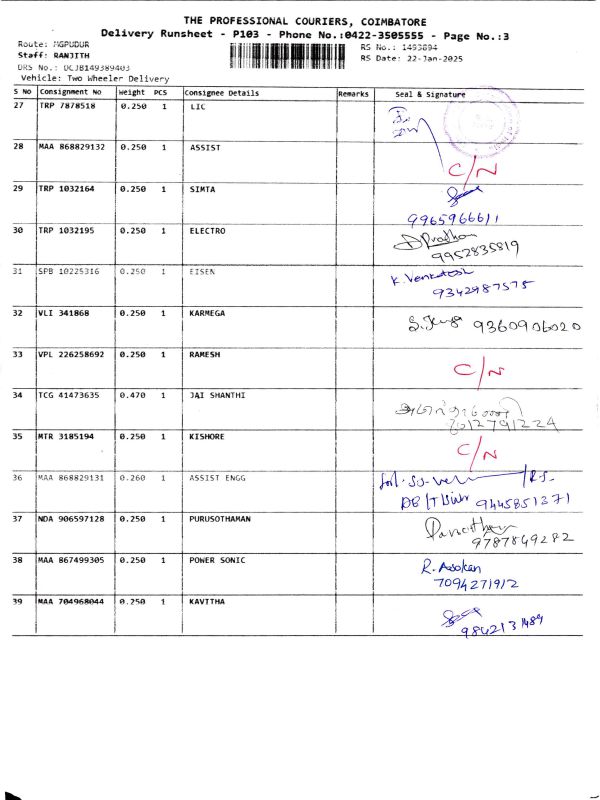 THE PROFESSIONAL COURIERS, COIMBATORE
Delivery Runsheet - P103 - Phone No.:0422-3505555 - Page No.:3
Route: MGPUDUR
RS No.: 1493894
Staff: RANJITH
RS Date: 22-Jan-2025
DRS No.: DCJB149389403
Vehicle: Two Wheeler Delivery
S No Consignment No Weight PCS Consignee Details Remarks Seal & Signature
27 TRP 7878518 0.250 1 LIC
28 MAA 868829132 0.250 1 ASSIST C/N
29 TRP 1032164 0.250 1 SIMTA
9965966611
30 TRP 1032195 0.250 1 ELECTRO
9952835819
31 SPB 10225316 0.250 1 EISEN K. Venkatesh
9342987575
32 VLI 341868 0.250 1 KARMEGA 9360906020
33 VPL 226258692 0.250 1 RAMESH C/N
34 TCG 41473635 0.470 1 JAI SHANTHI
7012791224
35 MTR 3185194 0.250 1 KISHORE C/N
36 MAA 868829131 0.260 1 ASSIST ENGG
9445851371
37 NDA 906597128 0.250 1 PURUSOTHAMAN
9787849282
38 MAA 867499305 0.250 1 POWER SONIC R. Asokan
7094271912
39 MAA 704968044 0.250 1 KAVITHA
9842131489